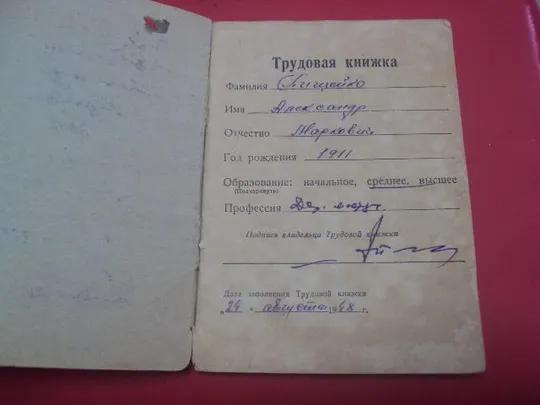 Трудовая книжка
Фамилия
Имя Александр
Отчество Маркович
Год рождения 1911
Образование: начальное, среднее, высшее
(Подчеркнуть)
Профессия
Подпись владельца Трудовой книжки
Дата заполнения Трудовой книжки
"24" августа 1948 г.